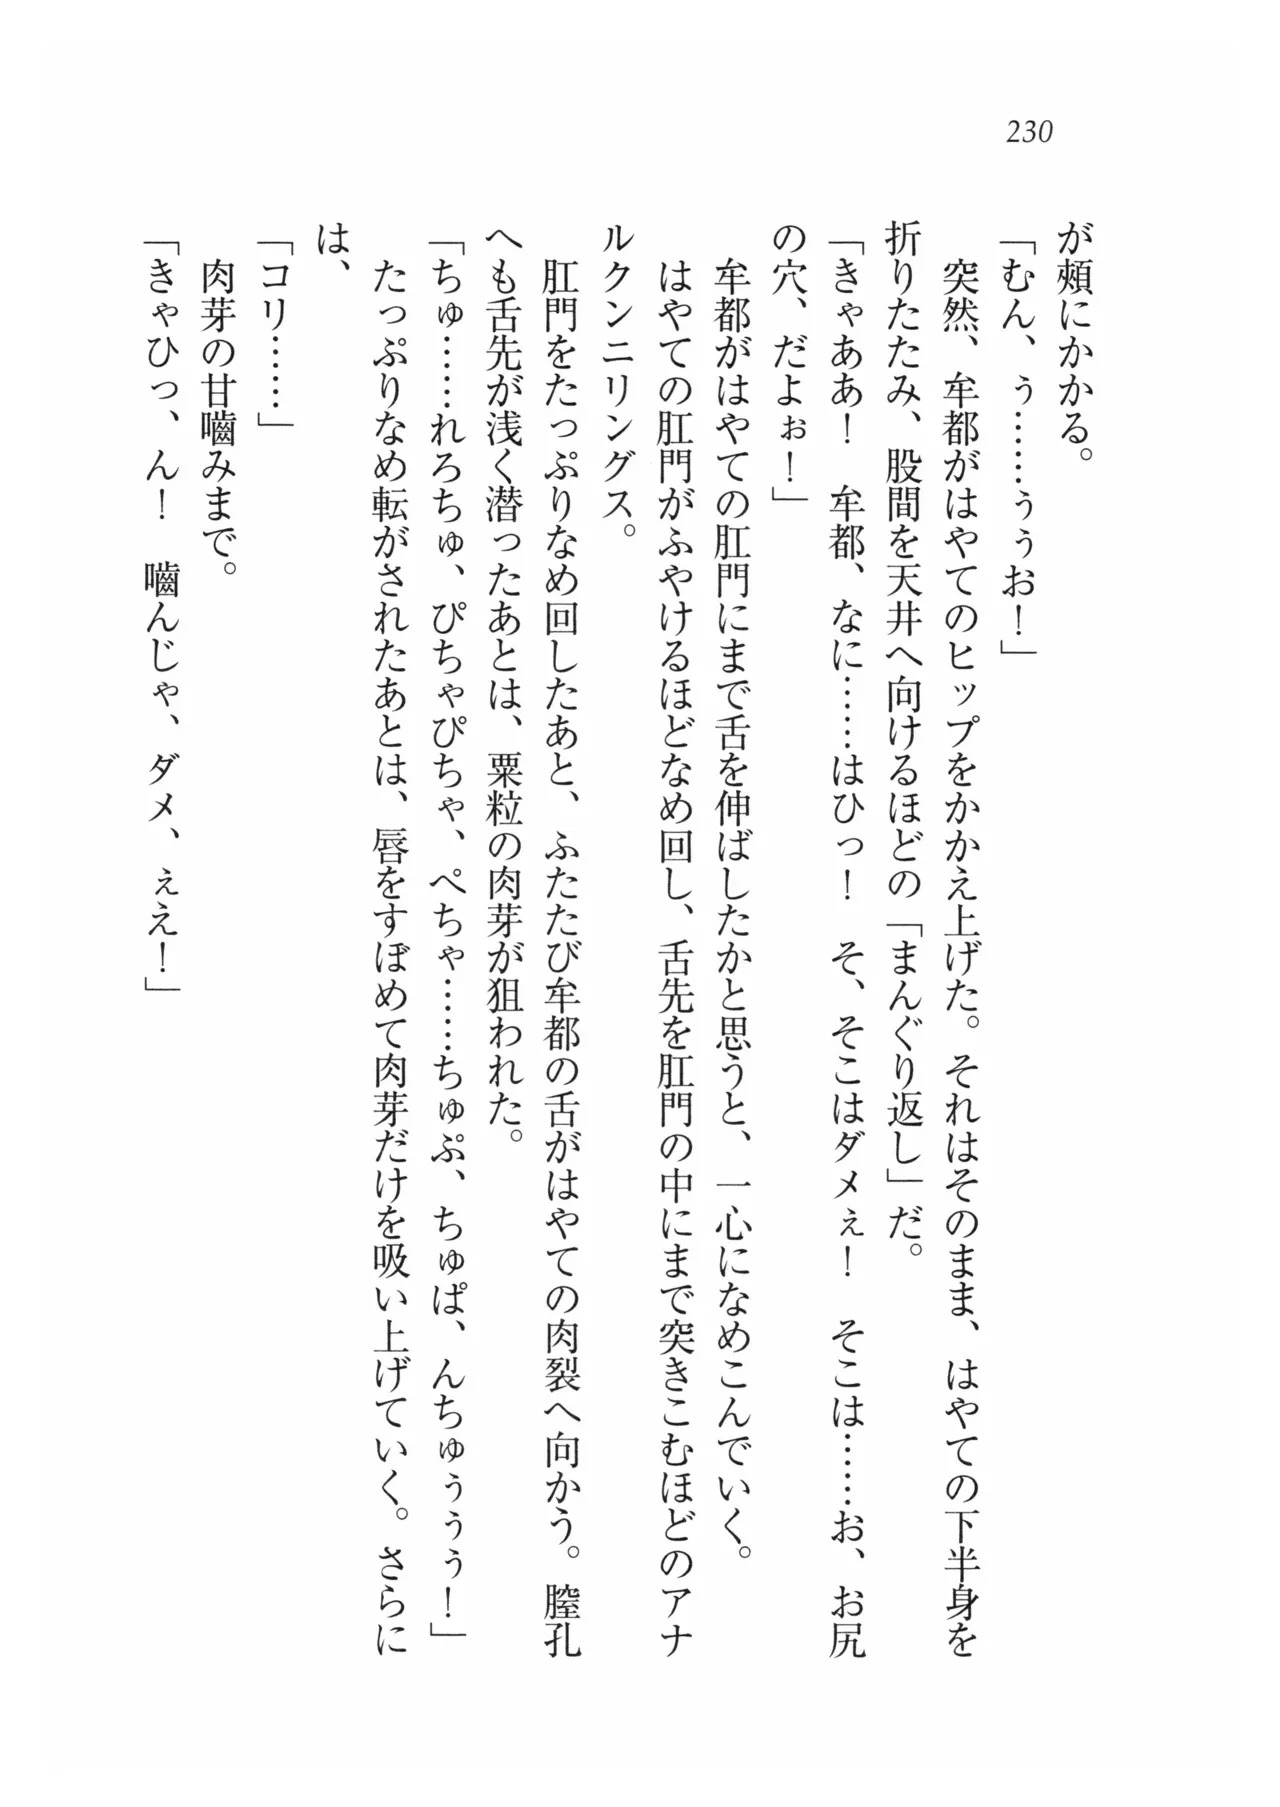 230
が頬にかかる。
「むん、ぅ……ぅぅお！」
　突然、牟都がはやてのヒップをかかえ上げた。それはそのまま、はやての下半身を
折りたたみ、股間を天井へ向けるほどの「まんぐり返し」だ。
「きゃああ！　牟都、なに……はひっ！　そ、そこはダメぇ！　そこは……お、お尻
の穴、だよぉ！」
　牟都がはやての肛門にまで舌を伸ばしたかと思うと、一心になめこんでいく。
　はやての肛門がふやけるほどなめ回し、舌先を肛門の中にまで突きこむほどのアナ
ルクンニリングス。
　肛門をたっぷりなめ回したあと、ふたたび牟都の舌がはやての肉裂へ向かう。膣孔
へも舌先が浅く潜ったあとは、粟粒の肉芽が狙われた。
「ちゅ……れろちゅ、ぴちゃぴちゃ、ぺちゃ……ちゅぷ、ちゅぱ、んちゅぅぅぅ！」
　たっぷりなめ転がされたあとは、唇をすぼめて肉芽だけを吸い上げていく。さらに
は、
「コリ……」
　肉芽の甘噛みまで。
「きゃひっ、ん！　噛んじゃ、ダメ、ぇえ！」